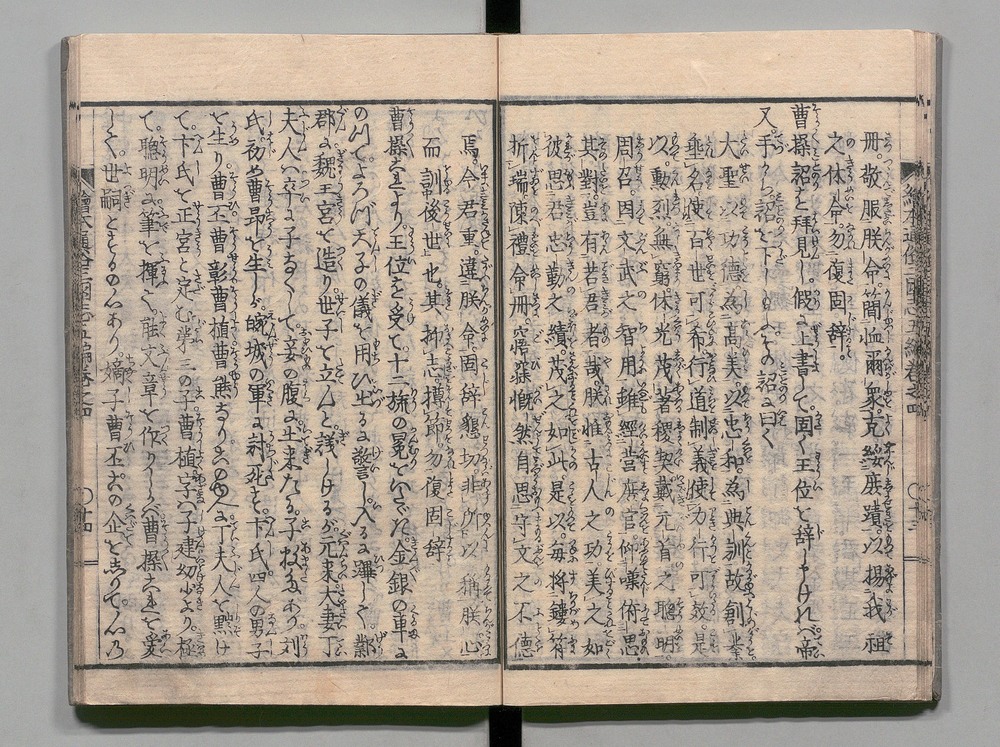 冊敬服朕命簡恤爾衆克綏庶績以揚我祖
之休命勿復固辞
曹操詔と拝見し仮に上書して固く王位を辞しけれバ帝
又手づら詔を下し その詔に曰く
大聖以功徳為高美以忠和為典訓故創業
垂名使百世可希行道制義使力行可効是
以勲烈無窮休光茂著稷契載元首之聡明
周召因文武之智用雖経営庶官仰嘆俯思
其対豈有若吾者哉朕惟古人之功美之如
彼思君忠勤之績茂之如此是以毎将鏤符
析瑞陳礼命冊寤寐慨然自忘守文之不徳
焉今君重違朕命固辞懇切非所以称朕心
而訓後世也其抑志撙節勿復固辞
曹操 王位を受て十二旒の冕をいただき金銀の車に
のりてよろづ天子の儀を用ひ出るに警し入るに蹕して鄴
郡に魏王宮を造り世子を立んと議しけるが元来大妻丁
夫人 子なくして妾の腹に出来たる子 あり劉
氏初め曹昂を生しが皖城の軍に討死を卞氏四人の男子
を生り曹丕曹彰曹植曹熊なり 丁夫人を黜け
て卞氏を正宮と定む第三の子曹植字ハ子建幼少より極
て聡明に筆を揮て 文章を作り バ曹操 愛
して世嗣とせるの心あり嫡子曹丕 の企を 心乃
絵本通俗三国志五編巻之四
〇十三
絵本通俗三国志五編巻之四
〇十四